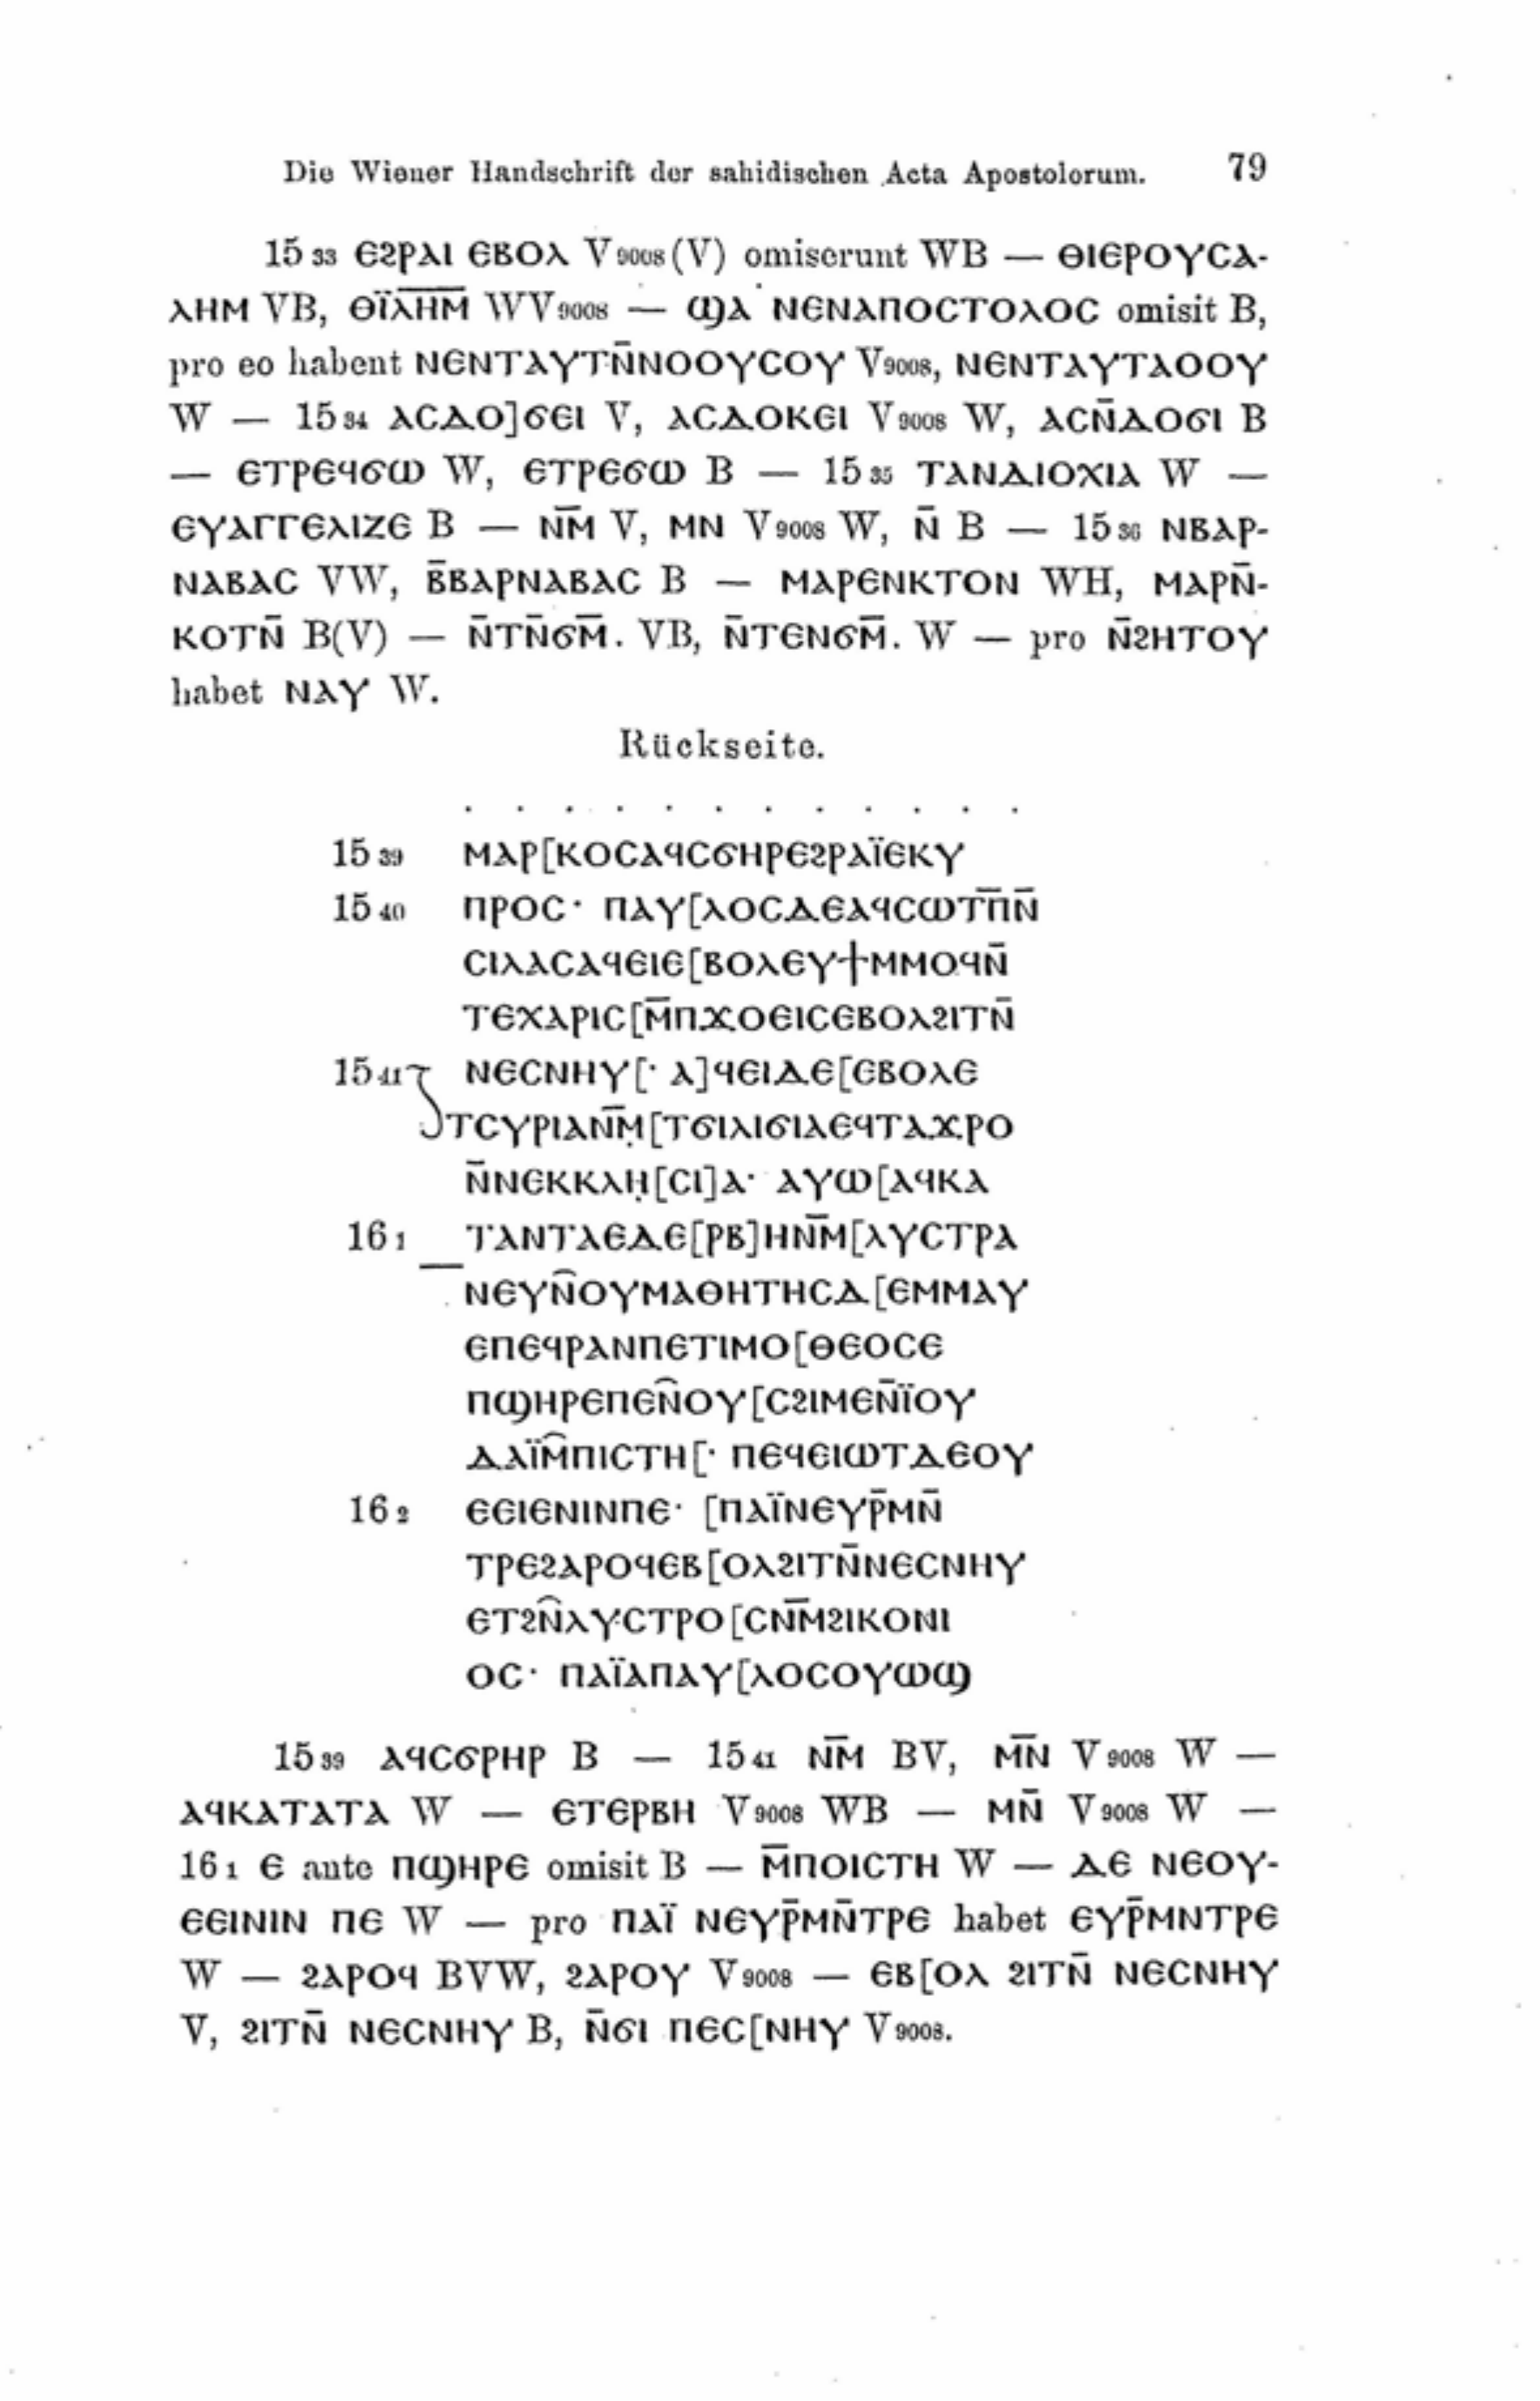 Die Wiener Handschrift der sahidischen Acta Apostolorum. 79
15 33 ⲉϩⲣⲁⲓ ⲉⲃⲟⲗ V 9008 (V) omiserunt WB — ⲑⲓⲉⲣⲟⲩⲥⲁ-
ⲗⲏⲙ VB, ⲑⲓ̈ⲗ̅ⲏ̅ⲙ̅ WV 9008 — ϣⲁ ⲛⲉⲛⲁⲡⲟⲥⲧⲟⲗⲟⲥ omisit B,
pro eo habent ⲛⲉⲛⲧⲁⲩⲧⲛ̄ⲛⲟⲟⲩⲥⲟⲩ V 9008, ⲛⲉⲛⲧⲁⲩⲧⲁⲟⲟⲩ
W — 15 34 ⲁⲥⲇⲟ]ϭⲉⲓ V, ⲁⲥⲇⲟⲕⲉⲓ V 9008 W, ⲁⲥⲛ̄ⲇⲟϭⲓ B
— ⲉⲧⲣⲉϥϭⲱ W, ⲉⲧⲣⲉϭⲱ B — 15 35 ⲧⲁⲛⲇⲓⲟⲭⲓⲁ W —
ⲉⲩⲁⲅⲅⲉⲗⲓⲍⲉ B — ⲛⲙ̅ V, ⲙⲛ V 9008 W, ⲛ̄ B — 15 36 ⲛⲃⲁⲣ-
ⲛⲁⲃⲁⲥ VW, ⲃ̄ⲃⲁⲣⲛⲁⲃⲁⲥ B — ⲙⲁⲣⲉⲛⲕⲧⲟⲛ WH, ⲙⲁⲣⲛ̄-
ⲕⲟⲧⲛ̄ B(V) — ⲛ̄ⲧⲛ̄ϭⲙ̄. VB, ⲛ̄ⲧⲉⲛϭⲙ̄. W — pro ⲛ̄ϩⲏⲧⲟⲩ
habet ⲛⲁⲩ W.
Rückseite.
. . . . . . . . . . . .
15 39 ⲙⲁⲣ[ⲕⲟⲥⲁϥⲥϭⲏⲣⲉϩⲣⲁⲓ̈ⲉⲕⲩ
15 40 ⲡⲣⲟⲥ· ⲡⲁⲩ[ⲗⲟⲥⲇⲉⲁϥⲥⲱⲧⲡ̅ⲛ̄
ⲥⲓⲗⲁⲥⲁϥⲉⲓⲉ[ⲃⲟⲗⲉⲩϯⲙⲙⲟϥⲛ̄
ⲧⲉⲭⲁⲣⲓⲥ[ⲙ̄ⲡϫⲟⲉⲓⲥⲉⲃⲟⲗϩⲓⲧⲛ̄
15 41 ⲛⲉⲥⲛⲏⲩ[· ⲁ]ϥⲉⲓⲇⲉ[ⲉⲃⲟⲗⲉ
ⲧⲥⲩⲣⲓⲁⲛⲙ̣̅[ⲧϭⲓⲗⲓϭⲓⲁⲉϥⲧⲁϫⲣⲟ
ⲛ̄ⲛⲉⲕⲕⲗⲏ̣[ⲥⲓ]ⲁ· ⲁⲩⲱ[ⲁϥⲕⲁ
16 1 ⲧⲁⲛⲧⲁⲉⲇⲉ[ⲣⲃ]ⲏⲛⲙ̅[ⲗⲩⲥⲧⲣⲁ
ⲛⲉⲩⲛ̑ⲟⲩⲙⲁⲑⲏⲧⲏⲥⲇ[ⲉⲙⲙⲁⲩ
ⲉⲡⲉϥⲣⲁⲛⲡⲉⲧⲓⲙⲟ[ⲑⲉⲟⲥⲉ
ⲡϣⲏⲣⲉⲡⲉⲛ̑ⲟⲩ[ⲥϩⲓⲙⲉⲛ̄ⲓ̈ⲟⲩ
ⲇⲁⲓ̈ⲙ̑ⲡⲓⲥⲧⲏ[· ⲡⲉϥⲉⲓⲱⲧⲇⲉⲟⲩ
16 2 ⲉⲉⲓⲉⲛⲓⲛⲡⲉ· [ⲡⲁⲓ̈ⲛⲉⲩⲣ̄ⲙⲛ̄
ⲧⲣⲉϩⲁⲣⲟϥⲉⲃ[ⲟⲗϩⲓⲧⲛ̄ⲛⲉⲥⲛⲏⲩ
ⲉⲧϩⲛ̑ⲗⲩⲥⲧⲣⲟ[ⲥⲛⲙ̅ϩⲓⲕⲟⲛⲓ
ⲟⲥ· ⲡⲁⲓ̈ⲁⲡⲁⲩ[ⲗⲟⲥⲟⲩⲱϣ
15 39 ⲁϥⲥϭⲣⲏⲣ B — 15 41 ⲛⲙ̅ BV, ⲙ̅ⲛ V 9008 W —
ⲁϥⲕⲁⲧⲁⲧⲁ W — ⲉⲧⲉⲣⲃⲏ V 9008 WB — ⲙⲛ̄ V 9008 W —
16 1 ⲉ ante ⲡϣⲏⲣⲉ omisit B — ⲙ̄ⲡⲟⲓⲥⲧⲏ W — ⲇⲉ ⲛⲉⲟⲩ-
ⲉⲉⲓⲛⲓⲛ ⲡⲉ W — pro ⲡⲁⲓ̈ ⲛⲉⲩⲣ̄ⲙⲛ̄ⲧⲣⲉ habet ⲉⲩⲣ̄ⲙⲛⲧⲣⲉ
W — ϩⲁⲣⲟϥ BVW, ϩⲁⲣⲟⲩ V 9008 — ⲉⲃ[ⲟⲗ ϩⲓⲧⲛ̄ ⲛⲉⲥⲛⲏⲩ
V, ϩⲓⲧⲛ̄ ⲛⲉⲥⲛⲏⲩ B, ⲛ̄ϭⲓ ⲡⲉⲥ[ⲛⲏⲩ V 9008.